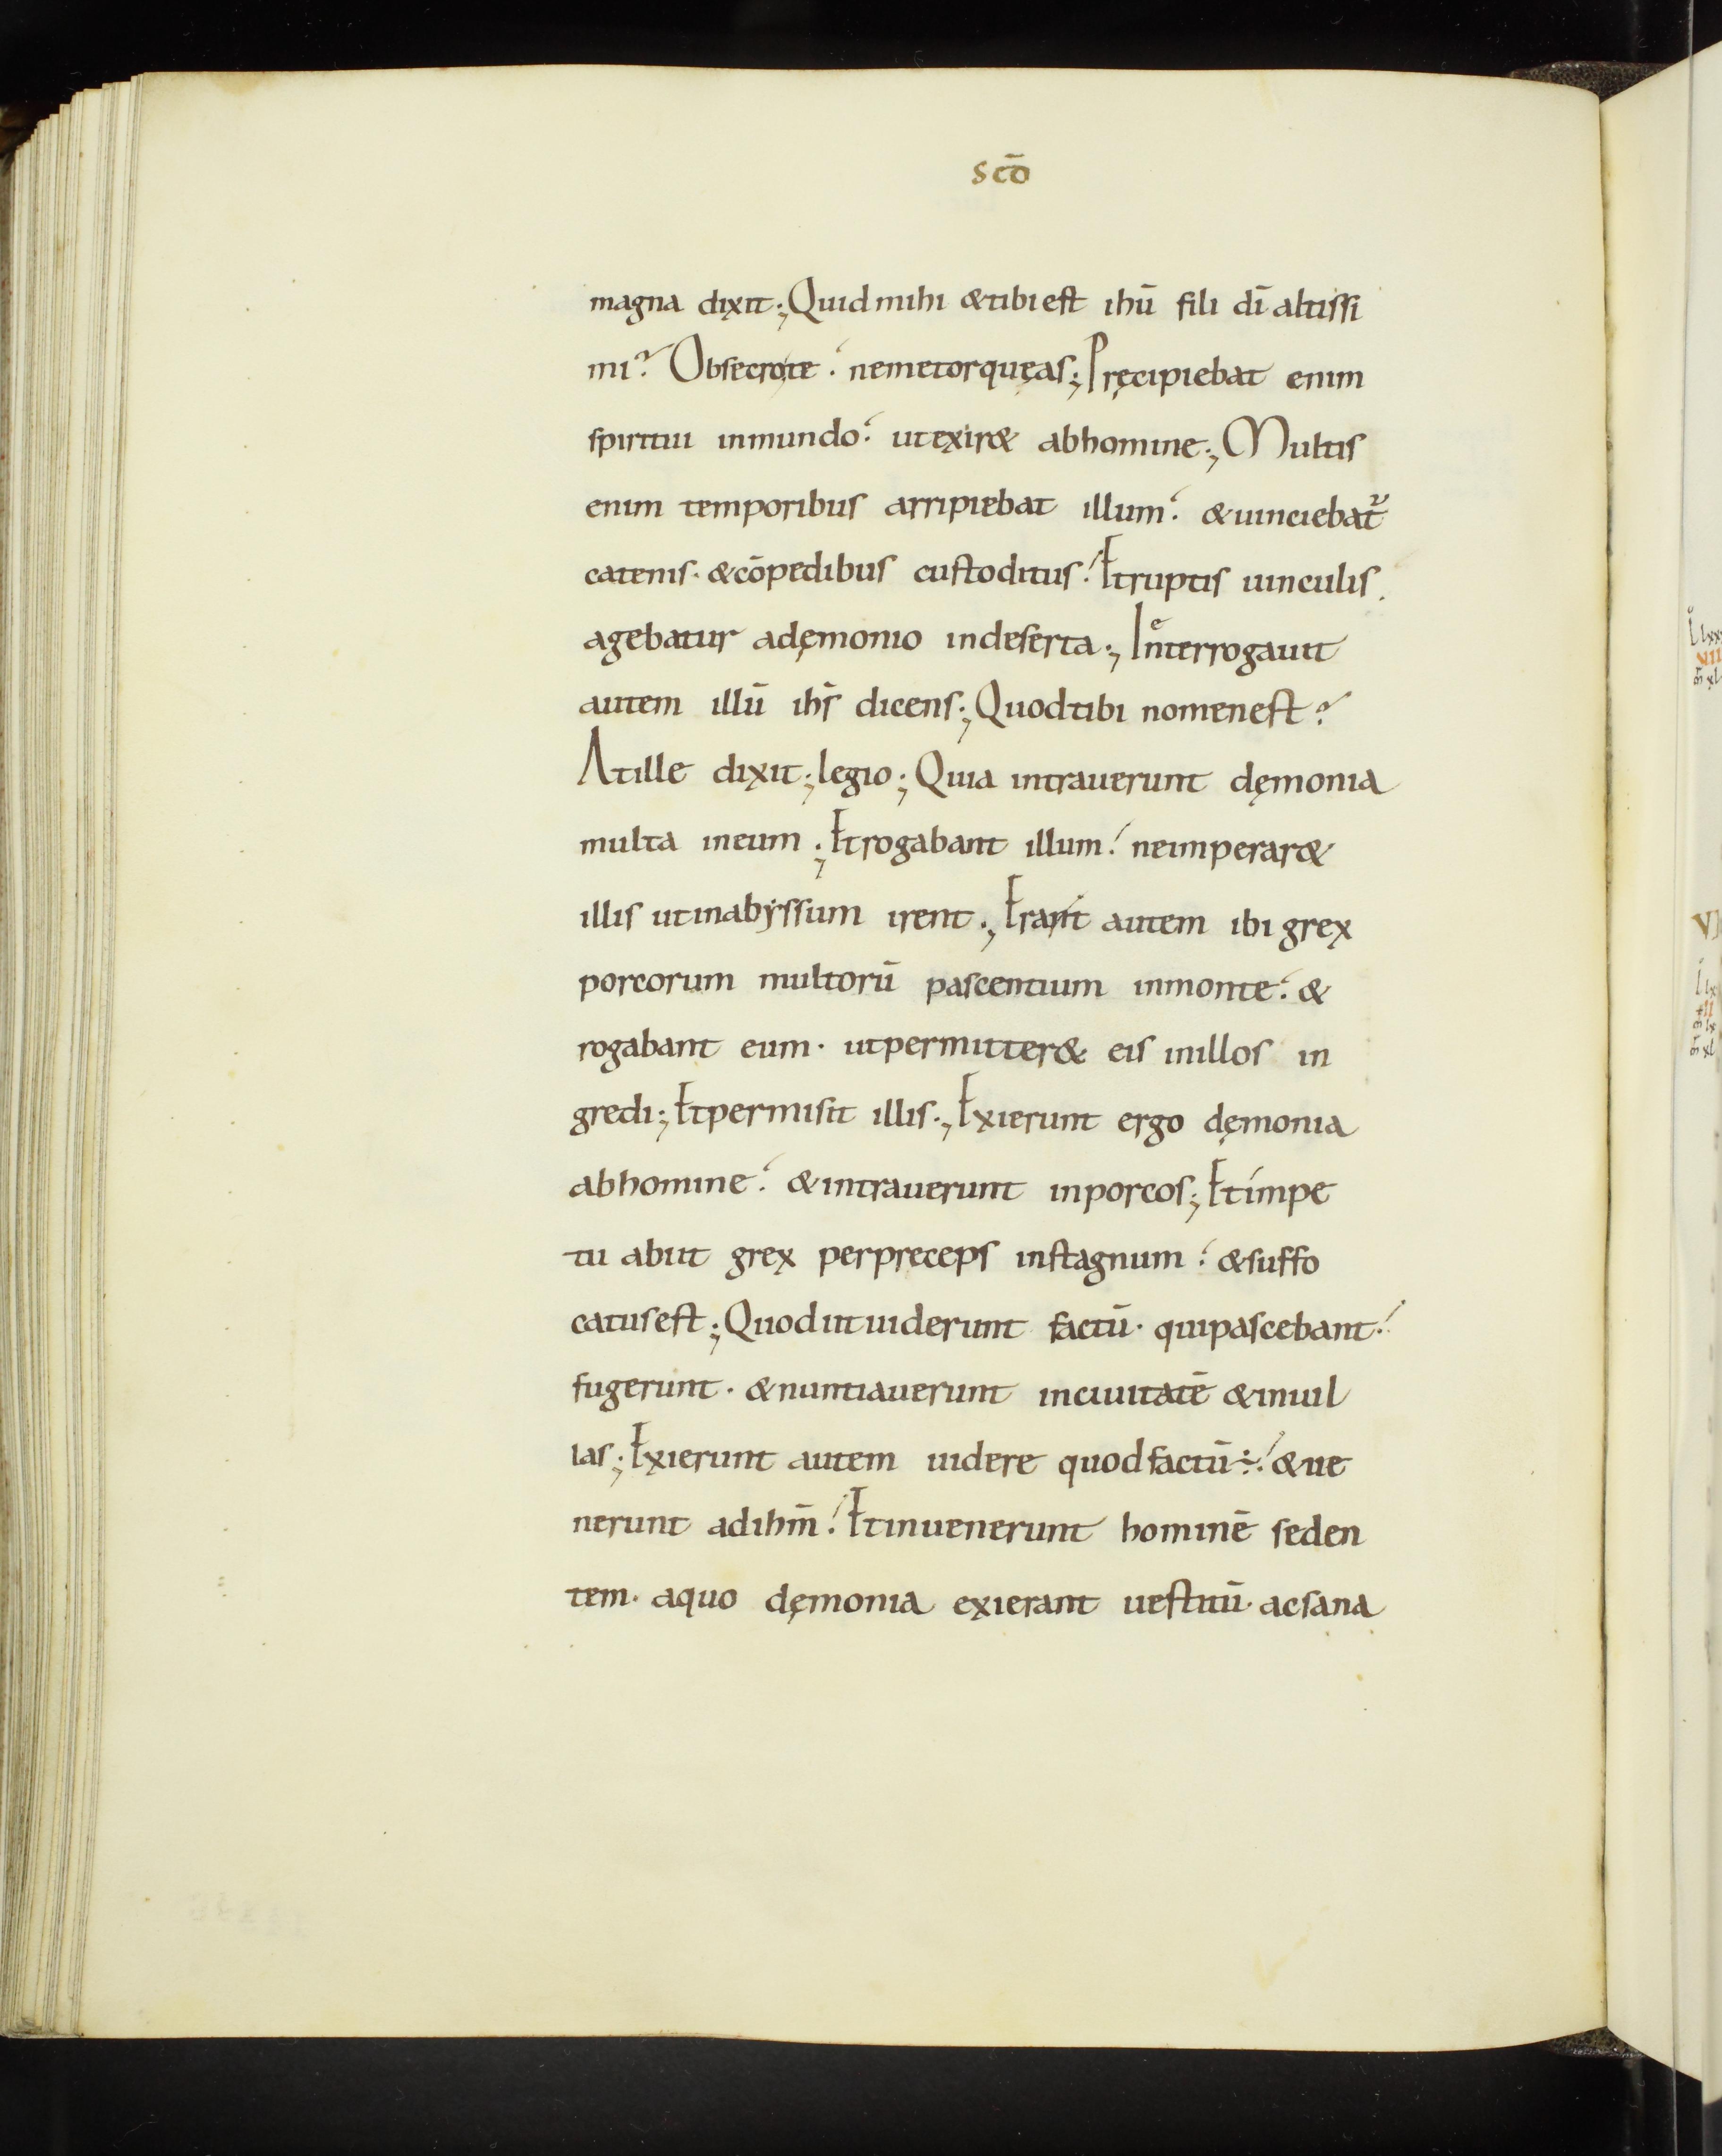 scō
magna dixit; Quid mihi & tibi est ihū fili dī altissi
mi? Obsecro te. ne me torqueas; Pręcipiebat enim
spiritui inmundo. ut exir& ab homine; Multis
enim temporibus arripiebat illum. & uinciebat᷑
catenis. & cōpedibus custoditus. Et ruptis uinculis.
agebatur a dęmonio in deserta; Interrogauit
autem illū ihs̄ dicens; Quod tibi nomen est?
At ille dixit; legio; Quia intrauerunt dęmonia
multa in eum; Et rogabant illum. ne imperar&
illis ut in abyssum irent; Erant autem ibi grex
porcorum multorū pascentium in monte. &
rogabant eum. ut permitter& eis in illos in
gredi; Et permisit illis; Exierunt ergo dęmonia
ab homine. & intrauerunt in porcos; Et impe
tu abiit grex per preceps in stagnum. & suffo
catus est; Quod ut uiderunt factū. qui pascebant.
fugerunt. & nuntiauerunt in ciuitatē & in uil
las; Exierunt autem uidere quod factū ÷. & ue
nerunt ad ihm̄. Et inuenerunt hominē seden
tem. a quo dęmonia exierant uestitū. ac sana